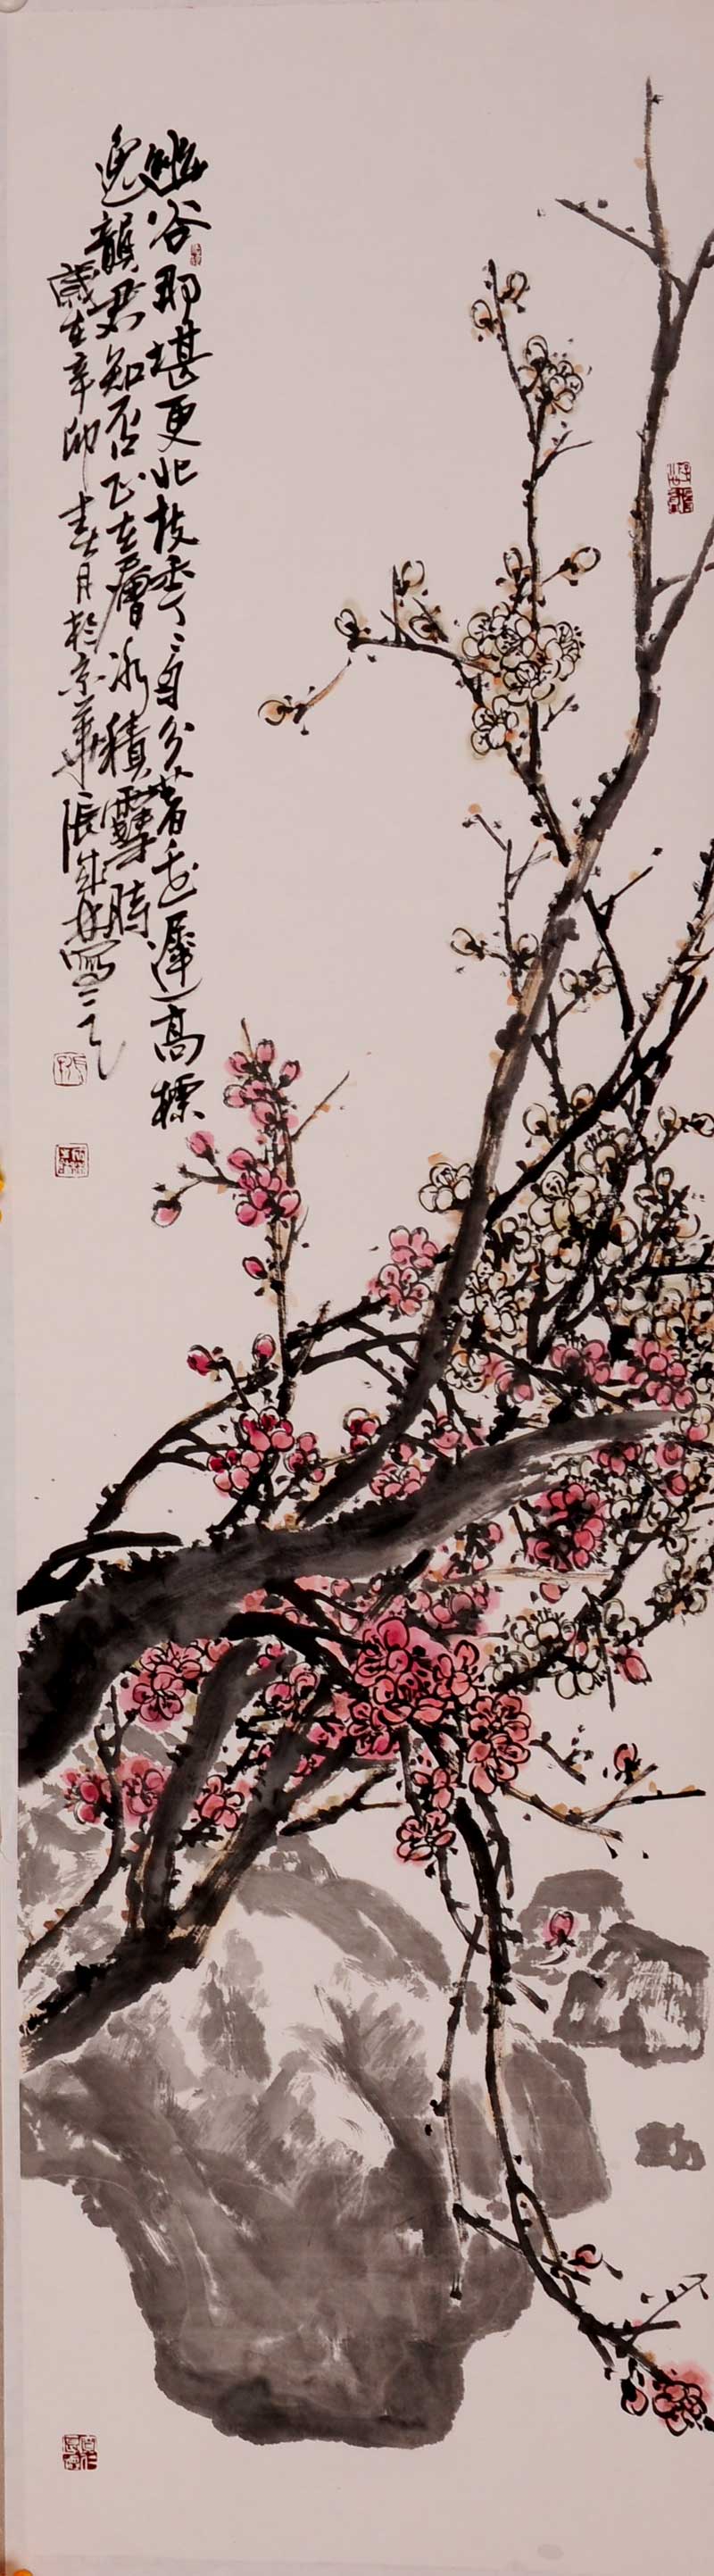 幽谷那堪更北枝年年自分著花遲高標
逸韻君知否正在層冰積雪時
歲在辛卯春月於京華張成林寫之